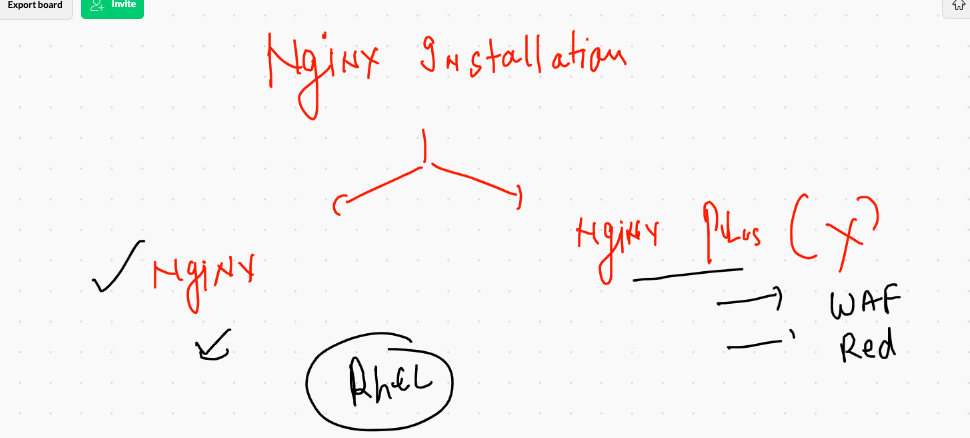 Export board
Invite
Nginx Installation
Nginx
Nginx Plus (X)
WAF
Red
RhEL